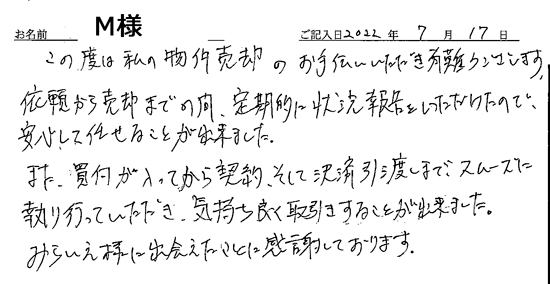 お名前 M様 ご記入日2022年7月17日
この度は私の物件売却のお手伝いいただき有難うございます。
依頼から売却までの間、定期的に状況報告をいただけたので、
安心して任せることが出来ました。
また、買付が入ってから契約、そして決済引渡しまでスムーズに
執り行っていただき、気持ち良く取引きすることが出来ました。
みらいえ様に出会えたことに感謝しております。